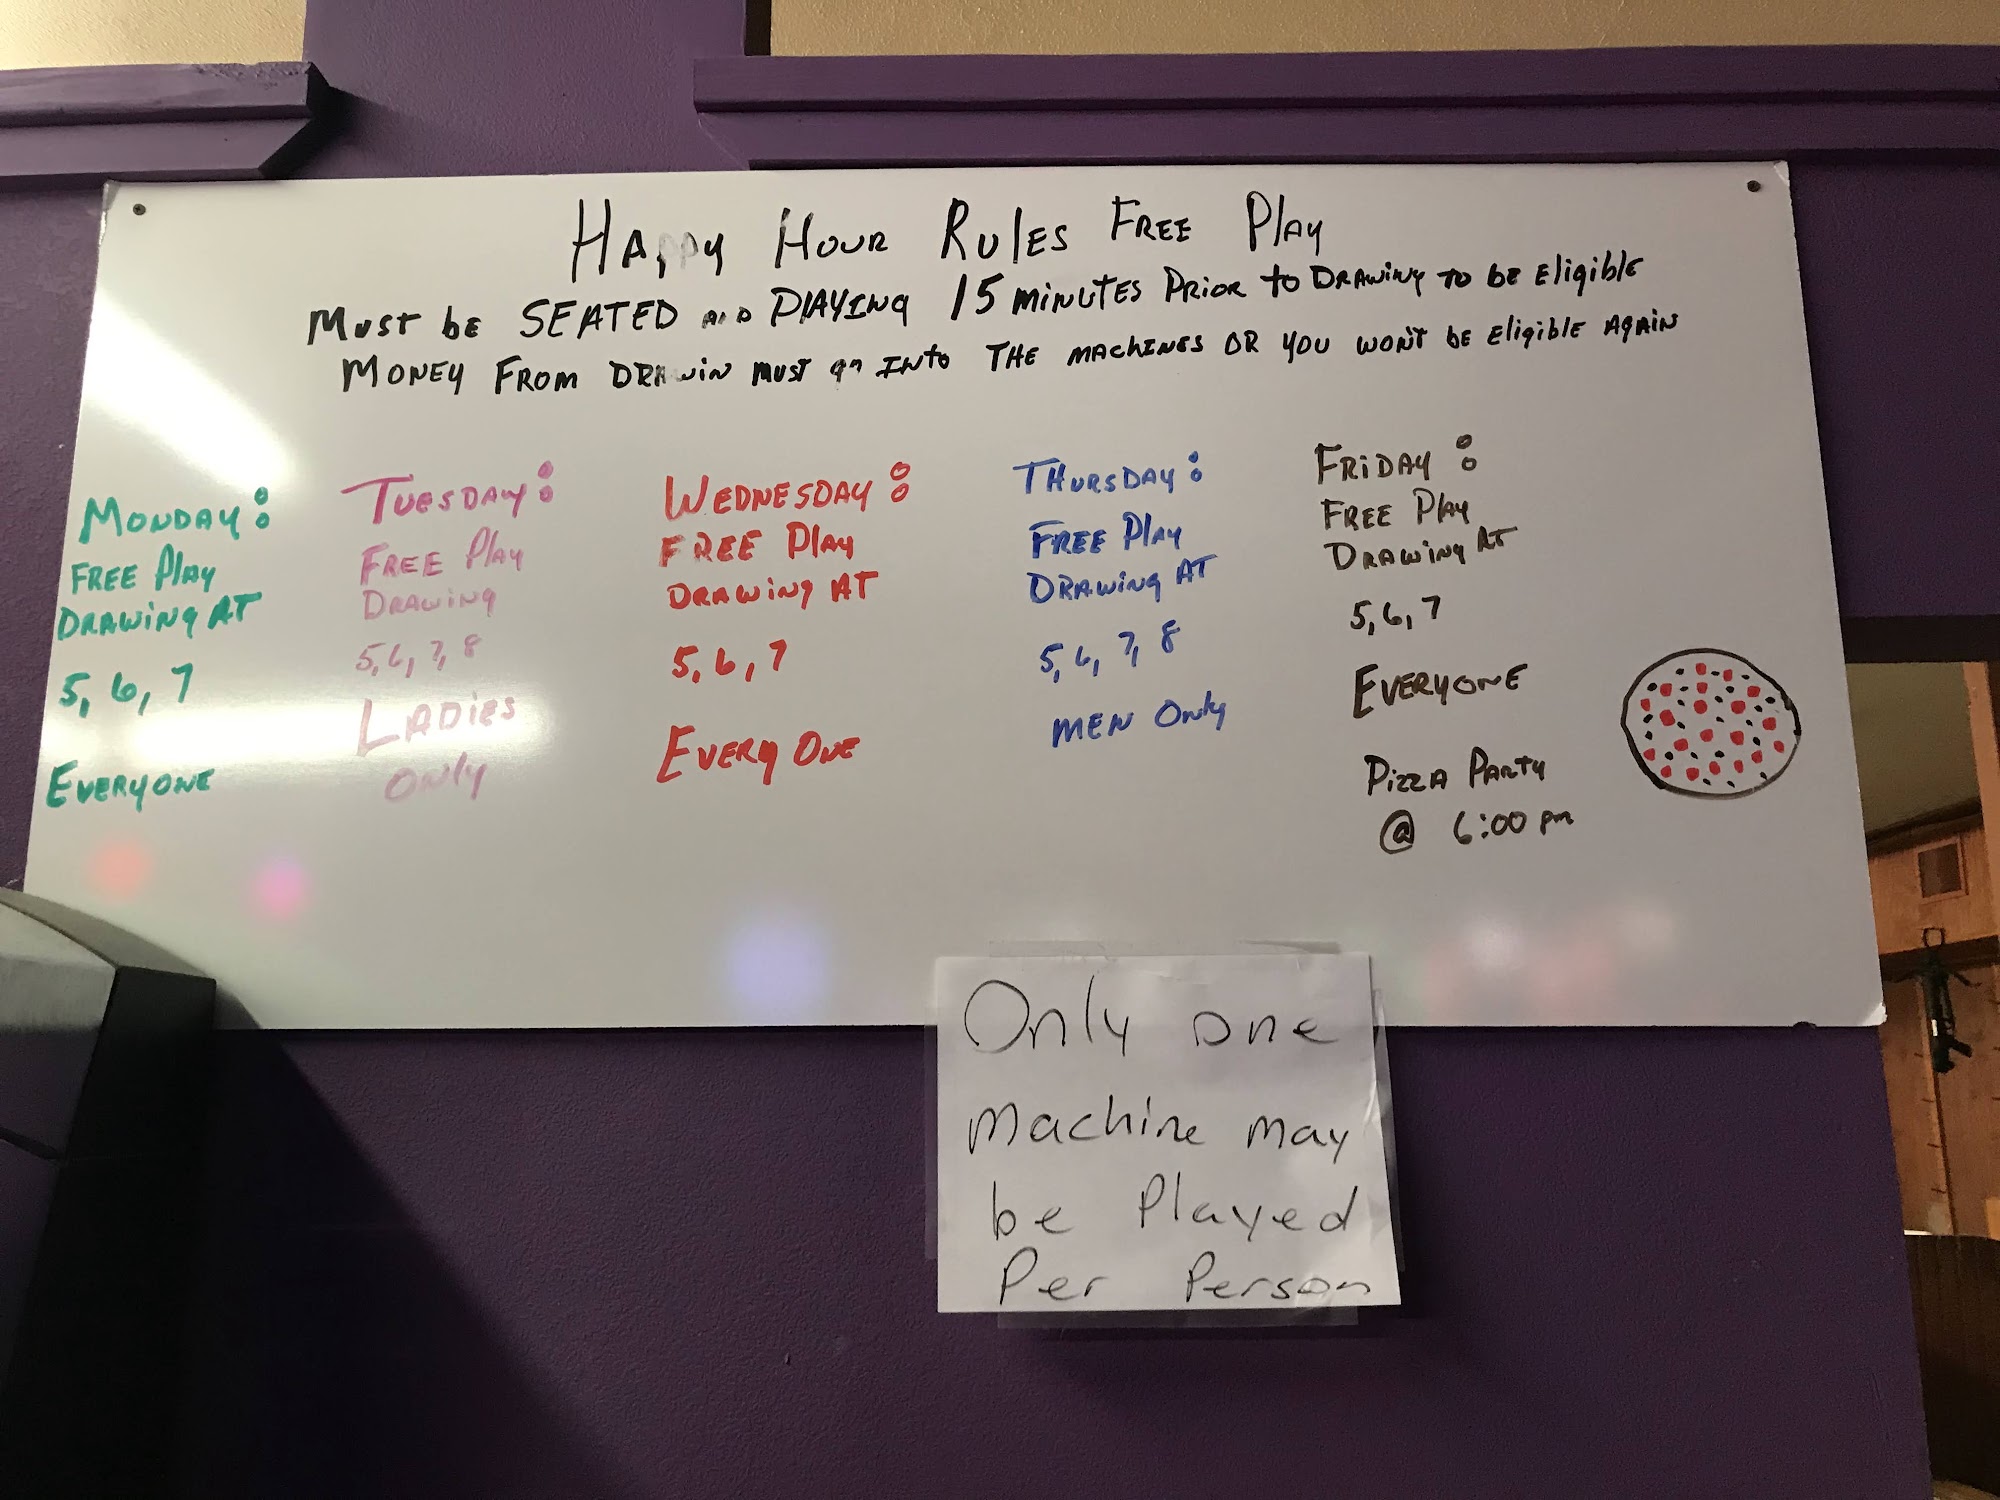 Happy Hour Rules Free Play
Must be SEATED and PLAYING 15 minutes Prior to Drawing to be Eligible
Money From Drawin must go INto THE machines OR you won't be Eligible Again
Monday:
Free Play
Drawing AT
5, 6, 7
Everyone
Tuesday:
Free Play
Drawing
5, 6, 7, 8
Ladies
Only
Wednesday:
Free Play
Drawing AT
5, 6, 7
Every One
Thursday:
Free Play
Drawing AT
5, 6, 7, 8
men Only
Friday:
Free Play
Drawing AT
5, 6, 7
Everyone
Pizza Party
@ 6:00 pm
Only one
machine may
be Played
Per Person